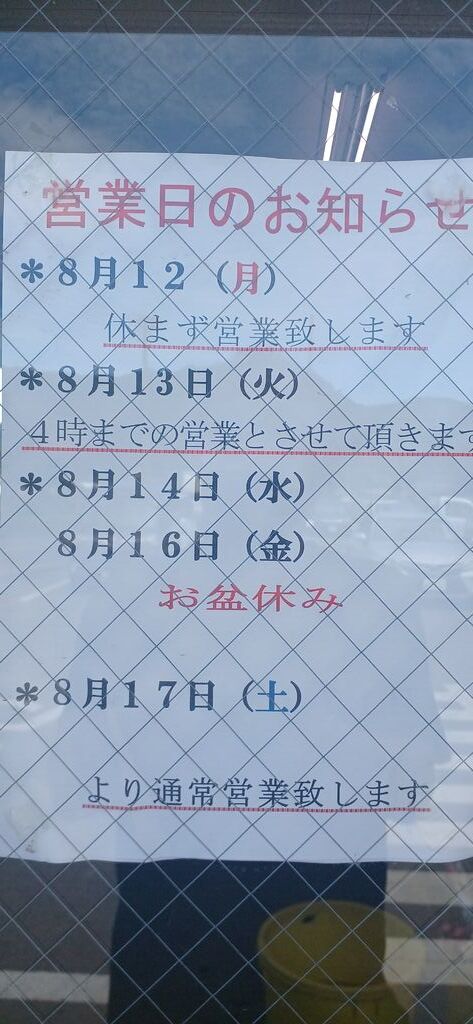 営業日のお知らせ
＊８月１２（月）
休まず営業致します
＊８月１３日（火）
４時までの営業とさせて頂きます
＊８月１４日（水）
８月１６日（金）
お盆休み
＊８月１７日（土）
より通常営業致します